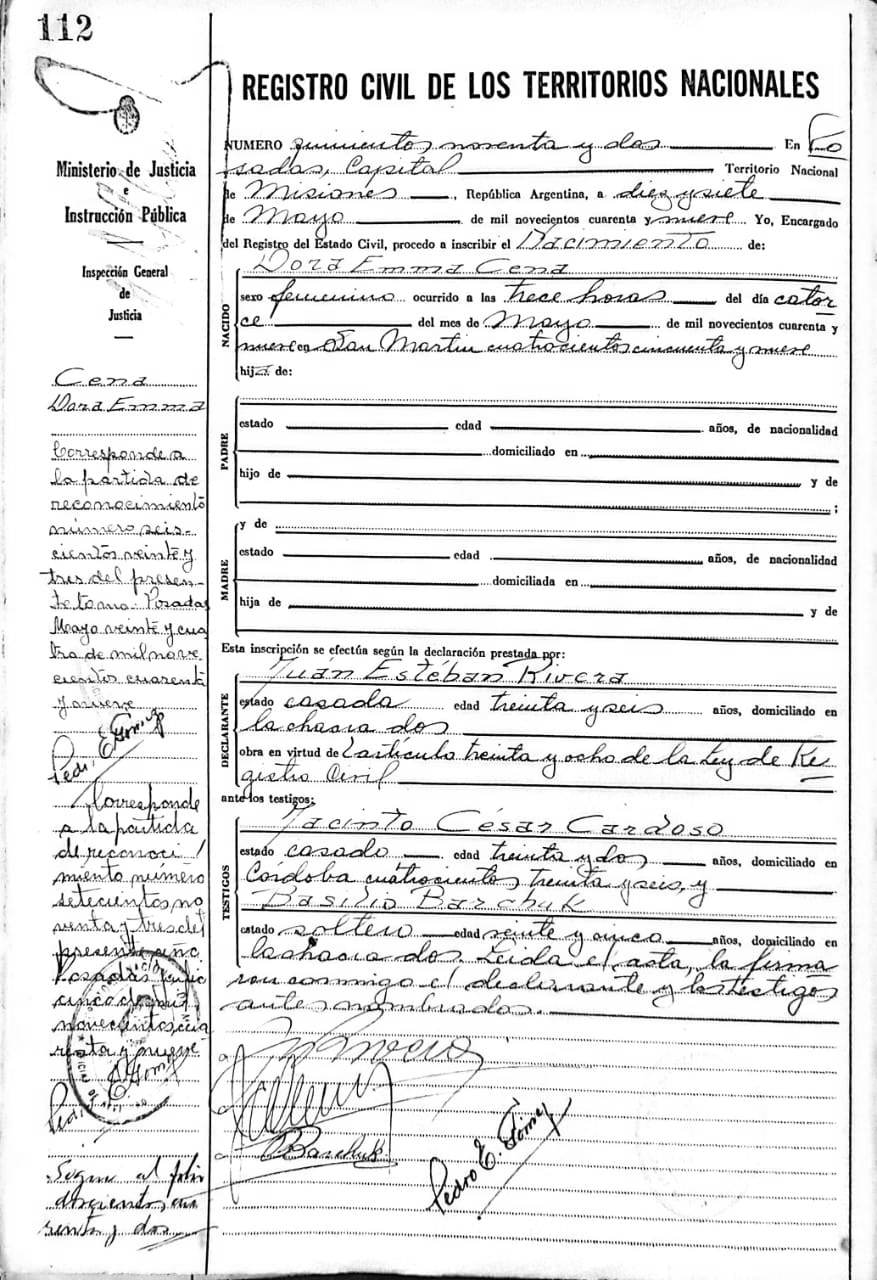 112
REGISTRO CIVIL DE LOS TERRITORIOS NACIONALES
Ministerio de Justicia
e
Instrucción Pública
Inspección General
de
Justicia
NUMERO quinientos noventa y dos En Po
sadas, Capital Territorio Nacional
de Misiones, República Argentina, a diez y siete
de Mayo de mil novecientos cuarenta y nueve Yo, Encargado
del Registro del Estado Civil, procedo a inscribir el Nacimiento de:
NACIDO
Dora Emma Cena
sexo femenino ocurrido a las trece horas del día cator
ce del mes de Mayo de mil novecientos cuarenta y
nueve en San Martin cuatrocientos cincuenta y nueve
hija de:
PADRE
estado edad años, de nacionalidad
domiciliado en
hijo de y de
;
MADRE
y de
estado edad años, de nacionalidad
domiciliada en
hija de y de
Esta inscripción se efectúa según la declaración prestada por:
DECLARANTE
Juán Estéban Rivera
estado casada edad treinta y seis años, domiciliado en
la chacra dos
obra en virtud de l artículo treinta y ocho de la Ley de Re
gistro Civil
ante los testigos:
TESTIGOS
Jacinto César Cardoso
estado casado edad treinta y dos años, domiciliado en
Cordoba cuatrocientos treinta y seis, y
Basilio Barchuk
estado soltero edad veinte y cinco años, domiciliado en
la chacra dos Leida el acta, la firma
ron conmigo el declarante y los testigos
antes nombrados.
Barchuk
Pedro E. Gómez
Cena
Dora Emma
Corresponde a
la partida de
reconocimiento
número seis-
cientos veinte y
tres del presen-
te tomo: Posadas
Mayo veinte y cua
tro de mil nove
cientos cuarenta
y nueve
Pedro E. Gómez
Corresponde
a la partida
de reconoci
miento número
setecientos no
venta y tres del
presente año
Posadas Julio
cinco de mil
novecientos cua
renta y nueve
Pedro E. Gómez
Sigue al folio
doscientos cua
renta y dos